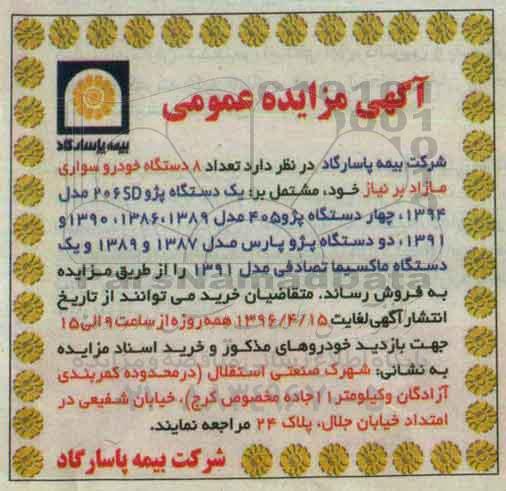 آگهی مزایده عمومی
بیمه پاسارگاد
شرکت بیمه پاسارگاد در نظر دارد تعداد ۸ دستگاه خودرو سواری
مازاد بر نیاز خود، مشتمل بر: یک دستگاه پژو ۲۰۶SD مدل
۱۳۹۴، چهار دستگاه پژو۴۰۵ مدل ۱۳۸۹، ۱۳۸۶، ۱۳۹۰ و
۱۳۹۱، دو دستگاه پژو پارس مدل ۱۳۸۷ و ۱۳۸۹ و یک
دستگاه ماکسیما تصادفی مدل ۱۳۹۱ را از طریق مزایده
به فروش رساند. متقاضیان خرید می توانند از تاریخ
انتشار آگهی لغایت ۱۳۹۶/۴/۱۵ همه روزه از ساعت ۹ الی ۱۵
جهت بازدید خودروهای مذکور و خرید اسناد مزایده
به نشانی: شهرک صنعتی استقلال (در محدوده کمربندی
آزادگان وکیلومتر ۱۱ جاده مخصوص کرج)، خیابان شفیعی در
امتداد خیابان جلال، پلاک ۲۴ مراجعه نمایند.
شرکت بیمه پاسارگاد
ParsNamadData